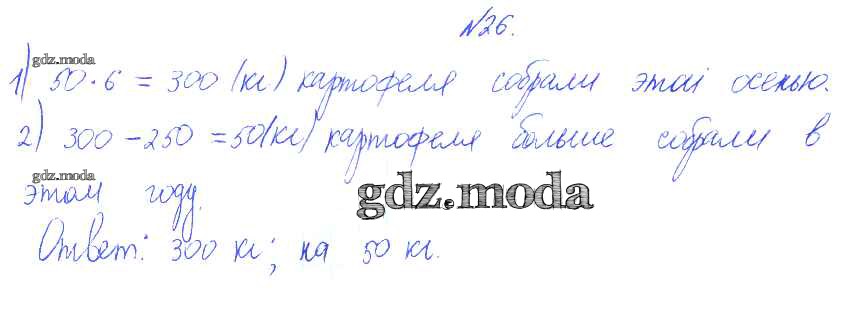 №26.
gdz.moda
1) 50·6 = 300 (кг) картофеля собрали этой осенью.
2) 300 - 250 = 50 (кг) картофеля больше собрали в
gdz.moda
этом году.
gdz.moda
Ответ: 300 кг; на 50 кг.